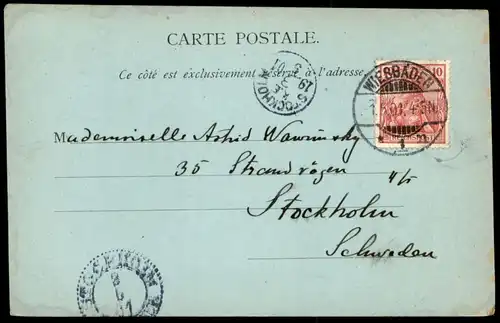 CARTE POSTALE.
Ce côté est exclusivement réservé à l'adresse
STOCKHOLM
WIESBADEN
10
Mademoiselle Astrid Wawrinsky
35 Strandvägen
Stockholm
Schweden